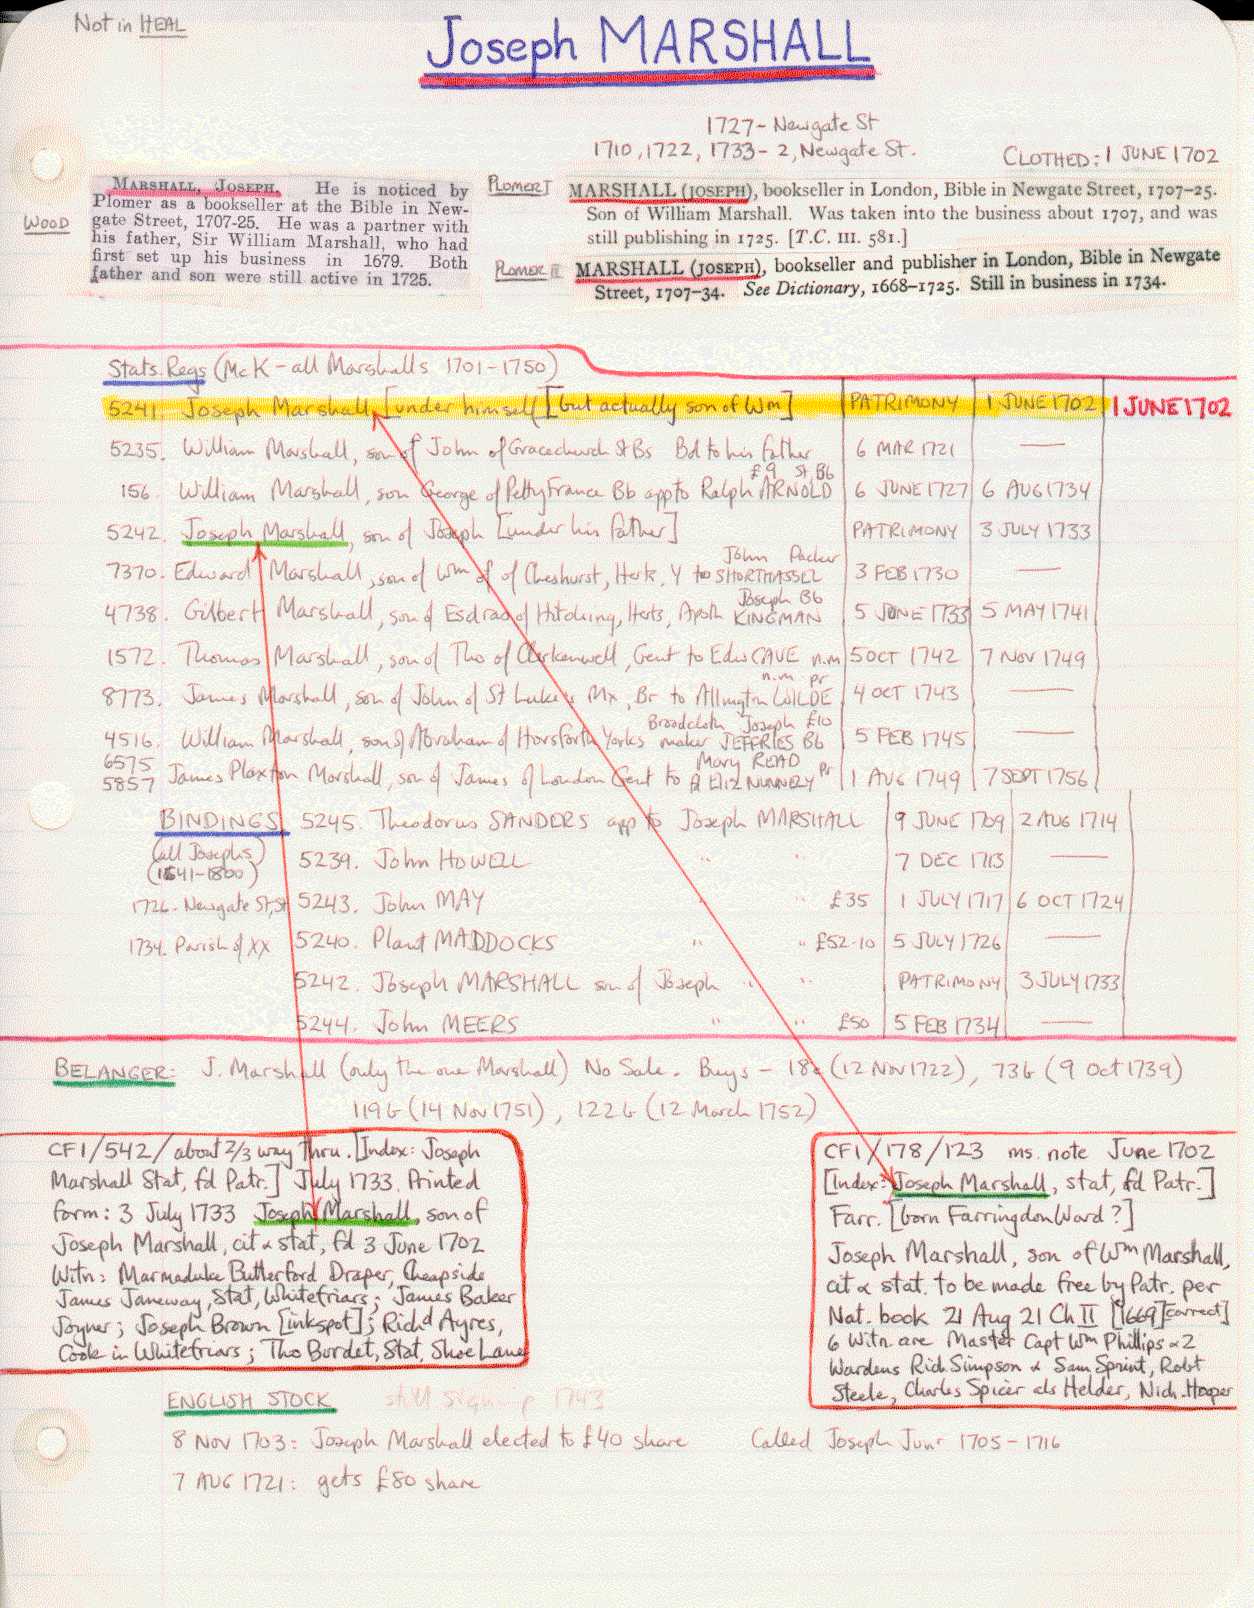 Not in HEAL
Joseph MARSHALL
1727 - Newgate St
1710, 1722, 1733 - 2, Newgate St.
CLOTHED: 1 JUNE 1702
WOOD
MARSHALL, JOSEPH. He is noticed by
Plomer as a bookseller at the Bible in New-
gate Street, 1707-25. He was a partner with
his father, Sir William Marshall, who had
first set up his business in 1679. Both
father and son were still active in 1725.
PLOMER I
MARSHALL (JOSEPH), bookseller in London, Bible in Newgate Street, 1707-25.
Son of William Marshall. Was taken into the business about 1707, and was
still publishing in 1725. [T.C. III. 581.]
PLOMER II
MARSHALL (JOSEPH), bookseller and publisher in London, Bible in Newgate
Street, 1707-34. See Dictionary, 1668-1725. Still in business in 1734.
Stats. Regs (McK - all Marshalls 1701-1750)
5241. Joseph Marshall [under himself [but actually son of Wm] PATRIMONY 1 JUNE 1702 1 JUNE 1702
5235. William Marshall, son of John of Gracechurch St Bs Bd to his father 6 MAR 1721 —
£9 St Bb
156. William Marshall, son George of Petty France Bb app to Ralph ARNOLD 6 JUNE 1727 6 AUG 1734
5242. Joseph Marshall, son of Joseph [under his father] PATRIMONY 3 JULY 1733
John Packer
7370. Edward Marshall, son of Wm of of Cheshurst, Herts, Y to SHORTHASSEL 3 FEB 1730 —
Joseph Bb
4738. Gilbert Marshall, son of Esdras of Hitching, Herts, Apoth KINGMAN 5 JUNE 1733 5 MAY 1741
1572. Thomas Marshall, son of Tho of Clerkenwell, Gent to Edw CAVE n.m 5 OCT 1742 7 NOV 1749
n.m pr
8773. James Marshall, son of John of St Luke's Mx, Br to Allington WILDE 4 OCT 1743 —
Broadcloth Joseph £10
4516. William Marshall, son of Abraham of Horsforth Yorks maker JEFFERIES Bb 5 FEB 1745 —
6575 Mary READ
5857 James Plaxton Marshall, son of James of London Gent to & Eliz NUNNELY pr 1 AUG 1749 7 SEPT 1756
BINDINGS 5245. Theodorus SANDERS app to Joseph MARSHALL 9 JUNE 1709 2 AUG 1714
(all Josephs) 5239. John HOWELL " " 7 DEC 1713 —
(1641-1800)
1726. Newgate St, St 5243. John MAY " £35 1 JULY 1717 6 OCT 1724
1734. Parish of XX 5240. Plant MADDOCKS " " £52-10 5 JULY 1726 —
5242. Joseph MARSHALL son of Joseph " " PATRIMONY 3 JULY 1733
5244. John MEERS " " £50 5 FEB 1734 —
BELANGER: J. Marshall (only the one Marshall) No Sale. Buys - 18c (12 Nov 1722), 73G (9 Oct 1739)
119G (14 Nov 1751), 122G (12 March 1752)
CF1/542/about 2/3 way thru. [Index: Joseph
Marshall Stat, fd Patr.] July 1733. Printed
form: 3 July 1733 Joseph Marshall, son of
Joseph Marshall, cit & stat, fd 3 June 1702
Witn: Marmaduke Butterford Draper, Cheapside
James Janeway, Stat, Whitefriars; James Baker
Joyner; Joseph Brown [inkspot]; Richd Ayres,
Cook in Whitefriars; Tho Burdet, Stat, Shoe Lane
CF1/178/123 ms. note June 1702
[Index: Joseph Marshall, stat, fd Patr.]
Farr. [born Farringdon Ward?]
Joseph Marshall, son of Wm Marshall,
cit & stat. to be made free by Patr. per
Nat. book 21 Aug 21 Ch II [1669] [correct]
6 Witn. are Master Capt Wm Phillips & 2
Wardens Rich. Simpson & Sam Sprint, Robt
Steele, Charles Spicer als Helder, Nich. Hooper
ENGLISH STOCK still signing 1743
8 NOV 1703: Joseph Marshall elected to £40 share Called Joseph Junr 1705-1716
7 AUG 1721: gets £80 share